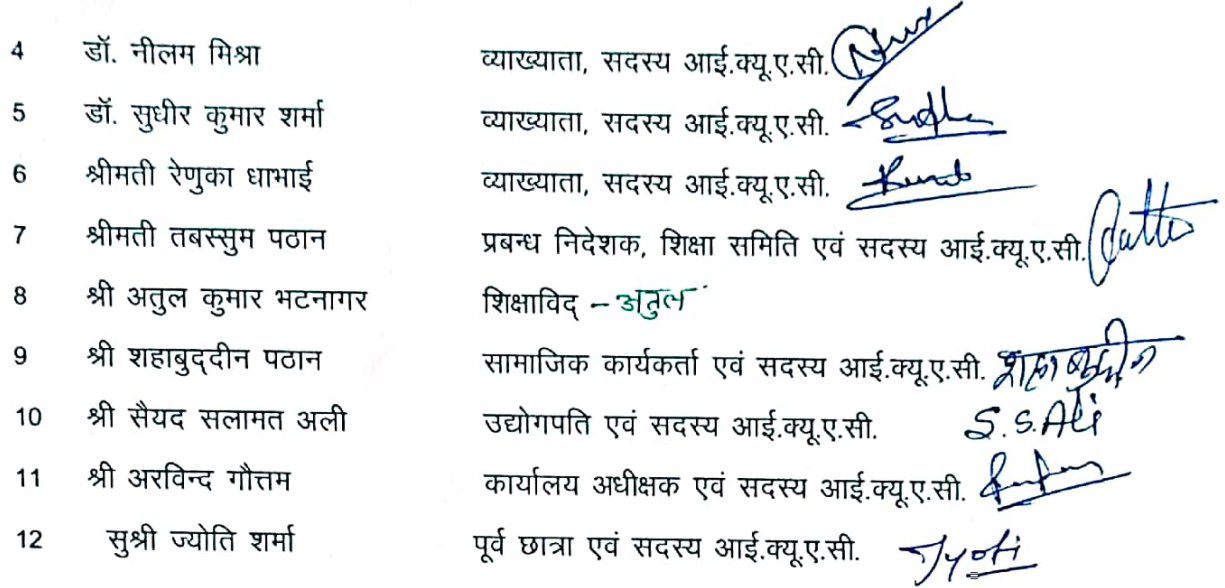 4 डॉ. नीलम मिश्रा व्याख्याता, सदस्य आई.क्यू.ए.सी.
5 डॉ. सुधीर कुमार शर्मा व्याख्याता, सदस्य आई.क्यू.ए.सी.
6 श्रीमती रेणुका धाभाई व्याख्याता, सदस्य आई.क्यू.ए.सी.
7 श्रीमती तबस्सुम पठान प्रबन्ध निदेशक, शिक्षा समिति एवं सदस्य आई.क्यू.ए.सी.
8 श्री अतुल कुमार भटनागर शिक्षाविद् – अतुल
9 श्री शहाबुद्दीन पठान सामाजिक कार्यकर्ता एवं सदस्य आई.क्यू.ए.सी. शहाबुद्दीन
10 श्री सैयद सलामत अली उद्योगपति एवं सदस्य आई.क्यू.ए.सी. S.S.Ali
11 श्री अरविन्द गौत्तम कार्यालय अधीक्षक एवं सदस्य आई.क्यू.ए.सी.
12 सुश्री ज्योति शर्मा पूर्व छात्रा एवं सदस्य आई.क्यू.ए.सी. Jyoti